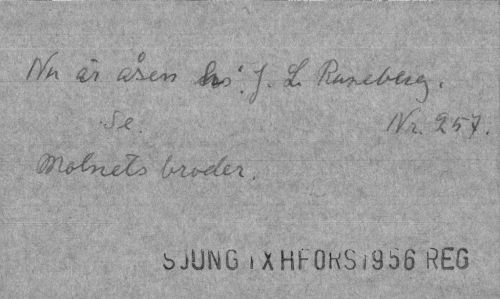 Nu är åsen J. L. Runeberg.
Se. Nr. 257.
Molnets broder.
SJUNG IX HFORS 1956 REG